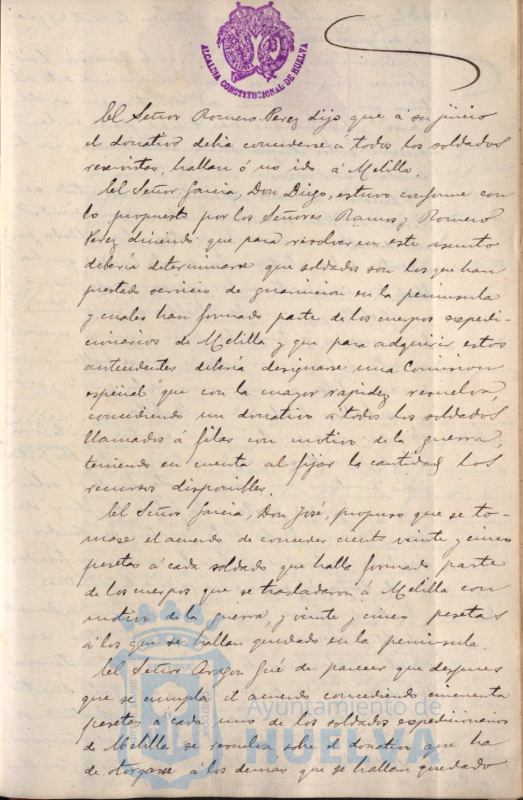 ALCALDIA CONSTITUCIONAL DE HUELVA
El Señor Romero Perez dijo que á su juicio
el donativo debia concederse á todos los soldados
reservistas, hallan ó no ido á Melilla.
El Señor Garcia, Don Diego, estuvo conforme con
lo propuesto por los Señores Ramos y Romero
Perez diciendo que para resolver en este asunto
debería determinarse que soldados son los que han
prestado servicio de guarnicion en la peninsula
y cuales han formado parte de los cuerpos expedi-
cionarios de Melilla y que para adquirir estos
antecedentes debería designarse una Comision
especial que con la mayor rapidez resuelva,
concediendo un donativo á todos los soldados
llamados á filas con motivo de la guerra,
teniendo en cuenta al fijar la cantidad los
recursos disponibles.
El Señor Garcia, Don José, propuso que se to-
mase el acuerdo de conceder ciento veinte y cinco
pesetas á cada soldado que halla formado parte
de los cuerpos que se trasladaron á Melilla con
motivo de la guerra, y veinte y cinco pesetas
á los que se hallan quedado en la peninsula.
El Señor Aragon fué de parecer que despues
que se cumpla el acuerdo concediendo cincuenta
pesetas á cada uno de los soldados expedicionarios
de Melilla se resuelva sobre el donativo que ha
de otorgarse á los demas que se hallan quedado
Ayuntamiento de
HUELVA